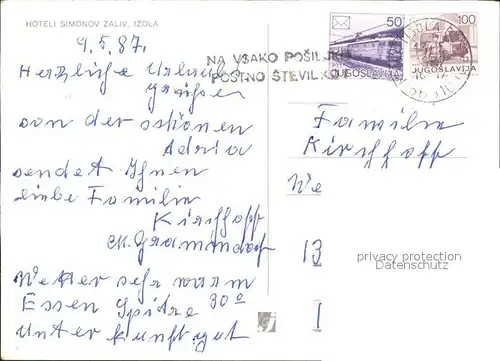 HOTELI SIMONOV ZALIV, IZOLA
9.5.87.
Herzliche Urlaubs
grüsse
von der schönen
Adria
sendet Ihnen
liebe Familie
Kirchhoff
Wetter sehr warm
30°
Essen Spitze
Unterkunft gut
NA VSAKO POŠILJKO
POŠTNO ŠTEVILKO
50
JUGOSLAVIJA
100
JUGOSLAVIJA
Familie
Kirchhoff
We
13
privacy protection
Datenschutz